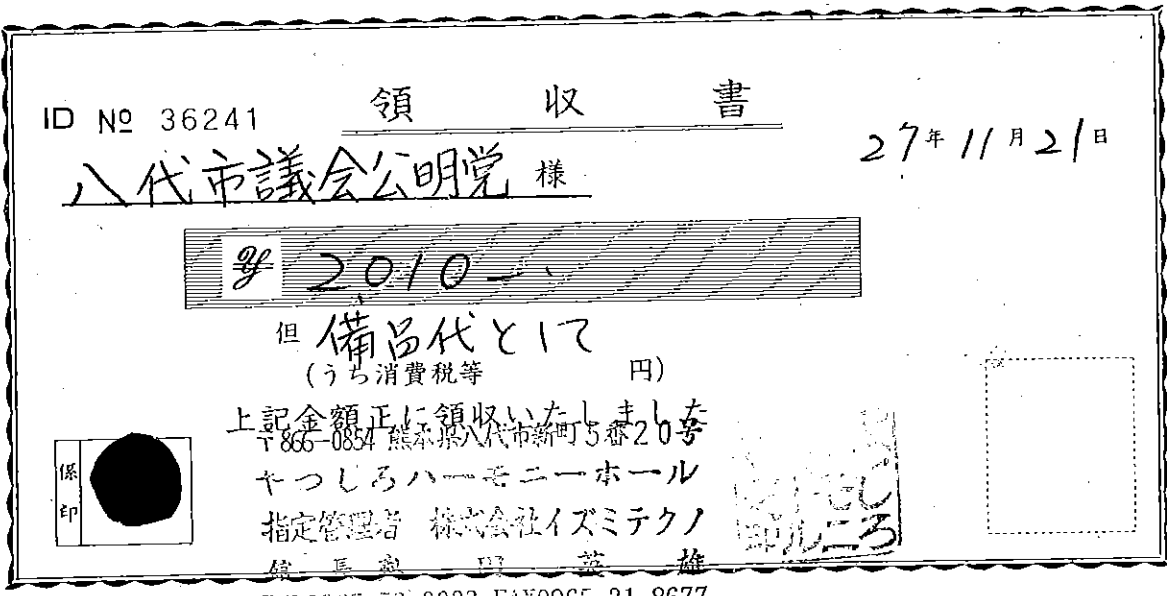 領 収 書
ID № 36241
27年11月21日
八代市議会公明党 様
¥ 2010-
但 備品代として
(うち消費税等 円)
上記金額正に領収いたしました
〒866-0854 熊本県八代市新町5番20号
やつしろハーモニーホール
指定管理者 株式会社イズミテクノ
館 長 奥 田 英 雄
FAX0965-31-8677
係印